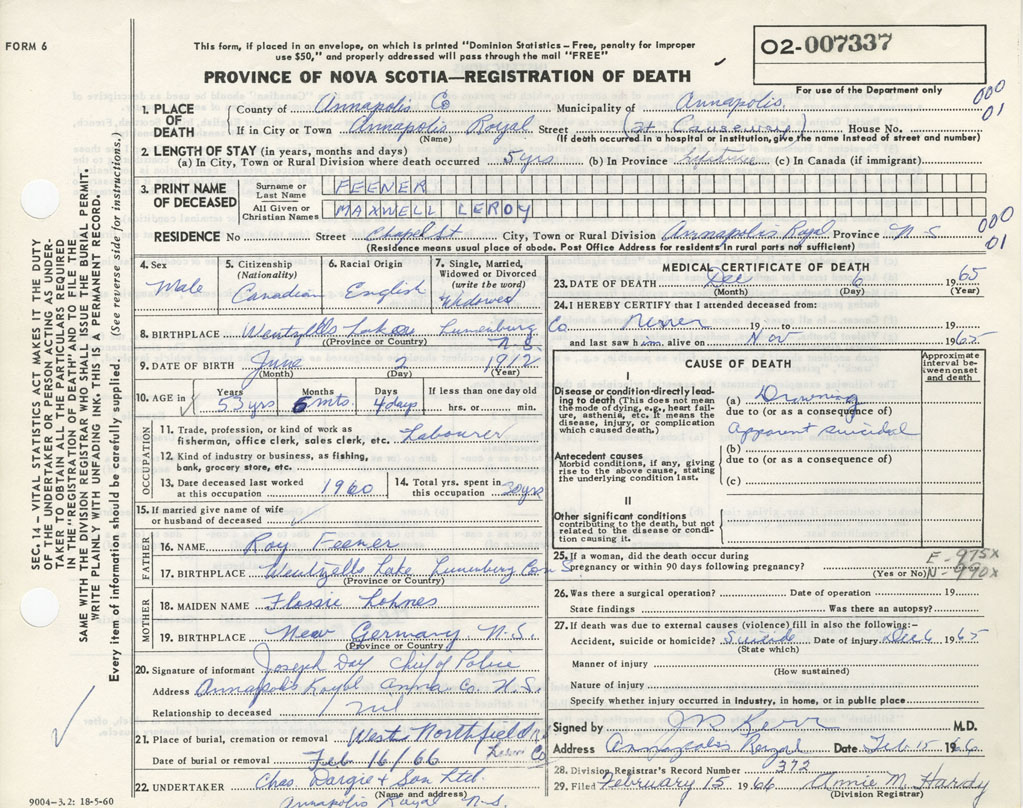 FORM 6
This form, if placed in an envelope, on which is printed "Dominion Statistics – Free, penalty for improper
use $50," and properly addressed will pass through the mail "FREE"
O2-007337
PROVINCE OF NOVA SCOTIA—REGISTRATION OF DEATH
For use of the Department only
000
01
1. PLACE OF DEATH
County of Annapolis Co Municipality of Annapolis
If in City or Town Annapolis Royal Street (at Causeway) House No.
(Name) (If death occurred in a hospital or institution, give the name instead of street and number)
2. LENGTH OF STAY (in years, months and days)
(a) In City, Town or Rural Division where death occurred 5yrs (b) In Province lifetime (c) In Canada (if immigrant)
3. PRINT NAME OF DECEASED
Surname or Last Name FEENER
All Given or Christian Names MAXWELL LEROY
000
01
RESIDENCE No Street Chapel St City, Town or Rural Division Annapolis Royal Province N-S
(Residence means usual place of abode. Post Office Address for residents in rural parts not sufficient)
4. Sex
Male
5. Citizenship
(Nationality)
Canadian
6. Racial Origin
English
7. Single, Married,
Widowed or Divorced
(write the word)
Widowed
8. BIRTHPLACE Wentzells Lake Lunenburg Co.
(Province or Country) N.S.
9. DATE OF BIRTH June 2 1912
(Month) (Day) (Year)
10. AGE in
Years
53 yrs
Months
6 mts.
Days
4 days
If less than one day old
hrs. or min.
OCCUPATION
11. Trade, profession, or kind of work as
fisherman, office clerk, sales clerk, etc. Labourer
12. Kind of industry or business, as fishing,
bank, grocery store, etc.
13. Date deceased last worked
at this occupation 1960
14. Total yrs. spent in
this occupation 30yrs
15. If married give name of wife
or husband of deceased
FATHER
16. NAME Roy Feener
17. BIRTHPLACE Wentzells Lake Lunenburg Co N S
(Province or Country)
MOTHER
18. MAIDEN NAME Flossie Lohnes
19. BIRTHPLACE New Germany N.S.
(Province or Country)
20. Signature of informant Joseph Day Chief of Police
Address Annapolis Royal Anna Co. N.S.
Relationship to deceased nil
21. Place of burial, cremation or removal West Northfield
Co
Date of burial or removal Feb 16/66
22. UNDERTAKER Chas. Dargie & Son Ltd.
(Name and address)
Annapolis Royal N.S.
MEDICAL CERTIFICATE OF DEATH
23. DATE OF DEATH Dec 6 1965
(Month) (Day) (Year)
24. I HEREBY CERTIFY that I attended deceased from:
Never 19 to 19
and last saw him alive on Nov 1965
CAUSE OF DEATH
Approximate
interval be-
tween onset
and death
I
Disease or condition directly lead-
ing to death (This does not mean
the mode of dying, e.g., heart fail-
ure, asthenia, etc. It means the
disease, injury, or complication
which caused death.)
(a) Drowning
due to (or as a consequence of)
Apparent suicidal
Antecedent causes
Morbid conditions, if any, giving
rise to the above cause, stating
the underlying condition last.
(b)
due to (or as a consequence of)
(c)
II
Other significant conditions
contributing to the death, but not
related to the disease or condi-
tion causing it.
25. If a woman, did the death occur during
pregnancy or within 90 days following pregnancy?
(Yes or No)
E - 975X
N - 990X
26. Was there a surgical operation? Date of operation 19
State findings Was there an autopsy?
27. If death was due to external causes (violence) fill in also the following:–
Accident, suicide or homicide? Suicide Date of injury Dec 6 1965
(State which)
Manner of injury
(How sustained)
Nature of injury
Specify whether injury occurred in Industry, in home, or in public place
Signed by J B Kerr M.D.
Address Annapolis Royal Date Feb 15 1966
28. Division Registrar's Record Number 372
29. Filed February 15 1966 Annie M. Hardy
(Division Registrar)
SEC. 14 – VITAL STATISTICS ACT MAKES IT THE DUTY
OF THE UNDERTAKER OR PERSON ACTING AS UNDER-
TAKER TO OBTAIN ALL THE PARTICULARS REQUIRED
IN THE "REGISTRATION OF DEATH" AND TO FILE THE
SAME WITH THE DIVISION REGISTRAR WHO SHALL ISSUE THE BURIAL PERMIT.
WRITE PLAINLY WITH UNFADING INK. THIS IS A PERMANENT RECORD.
Every item of information should be carefully supplied. (See reverse side for instructions.)
9004-3.2: 18-5-60